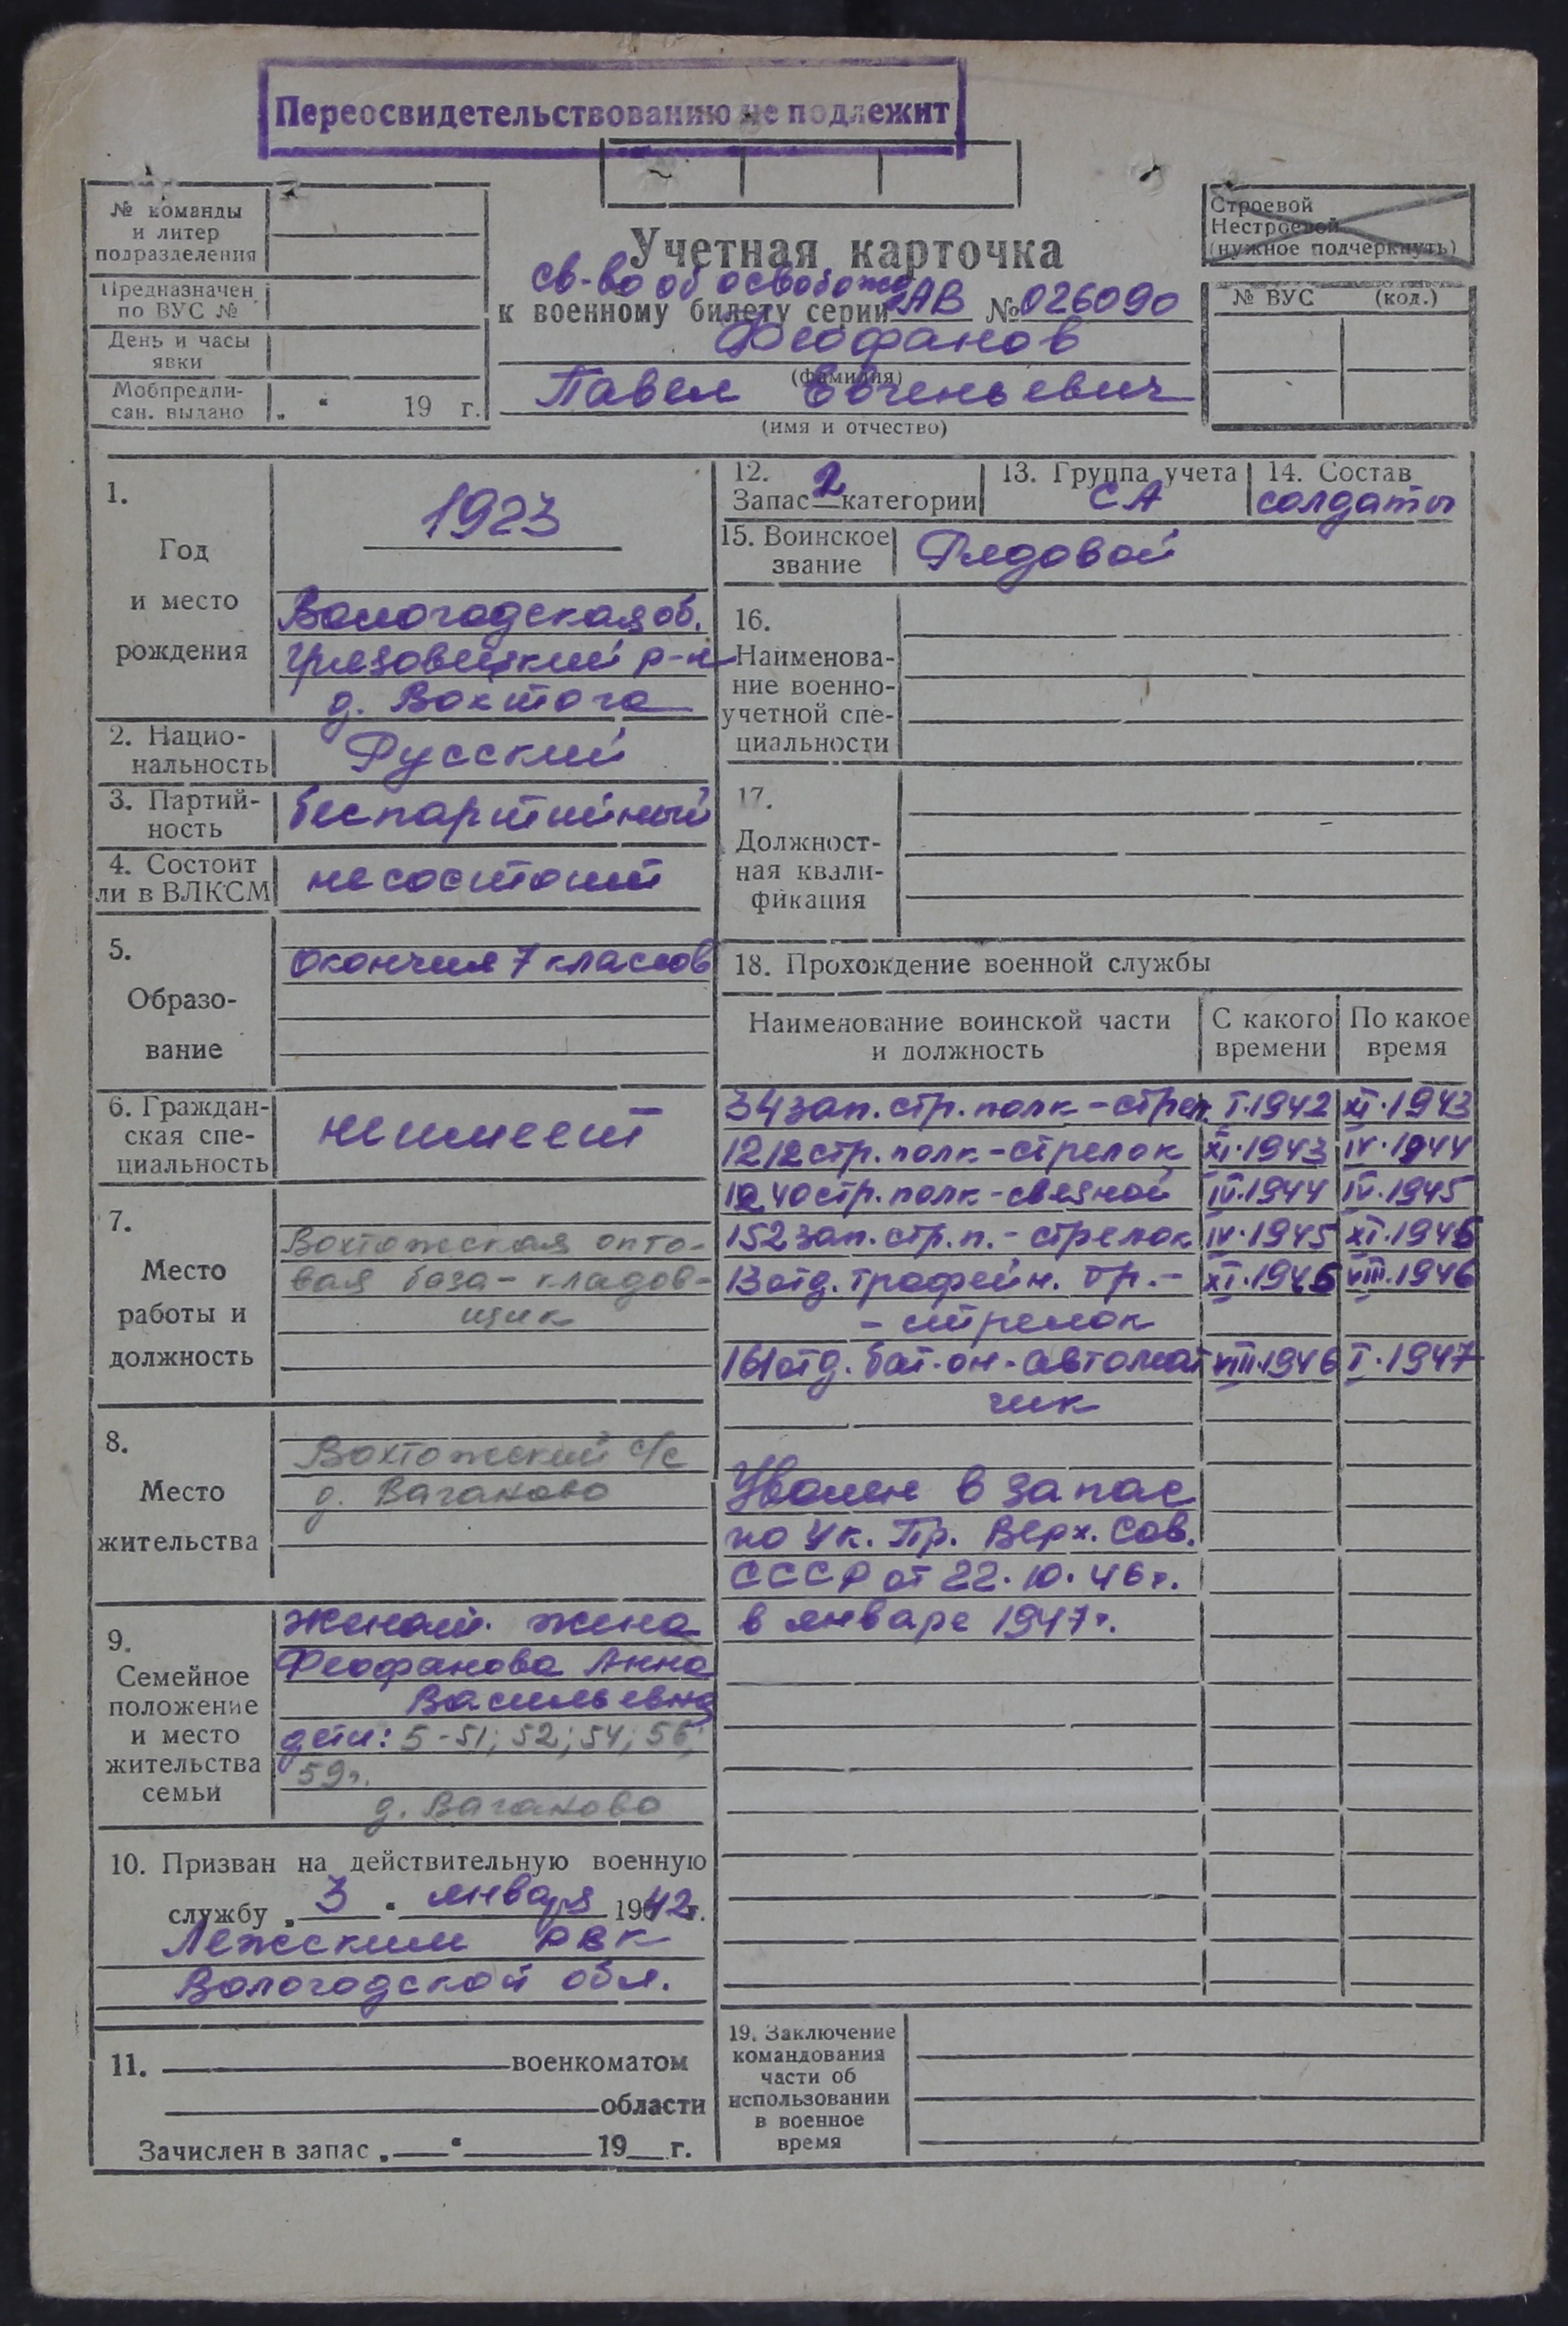 Переосвидетельствованию не подлежит
№ команды
и литер
подразделения
Предназначен
по ВУС №
День и часы
явки
Мобпредпи-
сан. выдано „ “ 19 г.
Учетная карточка
св-во об освобожд
к военному билету серии АВ № 026090
Феофанов
(фамилия)
Павел Евгеньевич
(имя и отчество)
Строевой
Нестроевой
(нужное подчеркнуть)
№ ВУС (код.)
1.
Год
и место
рождения
1923
Вологодская об.
Грязовецкий р-н
д. Вохтога
2. Нацио-
нальность Русский
3. Партий-
ность беспартийный
4. Состоит
ли в ВЛКСМ не состоит
5.
Образо-
вание
окончил 7 классов
6. Граждан-
ская спе-
циальность не имеет
7.
Место
работы и
должность
Вохтожская опто-
вая база - кладов-
щик
8.
Место
жительства
Вохтожский с/с
д. Ваганово
9.
Семейное
положение
и место
жительства
семьи
женат. жена
Феофанова Анна
Васильевна
дети: 5 - 51; 52; 54; 56;
59г.
д. Ваганово
10. Призван на действительную военную
службу „ 3 “ января 1942 г.
Лежским РВК
Вологодской обл.
11. военкоматом
области
Зачислен в запас „ “ 19 г.
12.
Запас 2 категории
13. Группа учета
СА
14. Состав
солдаты
15. Воинское
звание Рядовой
16.
Наименова-
ние военно-
учетной спе-
циальности
17.
Должност-
ная квали-
фикация
18. Прохождение военной службы
Наименование воинской части
и должность
С какого
времени
По какое
время
34 зап. стр. полк - стрел. I.1942 XI.1943
1212 стр. полк - стрелок XI.1943 IV.1944
1240 стр. полк - связной IV.1944 IV.1945
152 зап. стр. п. - стрелок IV.1945 XI.1945
13 отд. трофейн. бр. - XI.1945 VIII.1946
- стрелок
161 отд. бат-он - автомат VIII.1946 I.1947
чик
Уволен в запас
по Ук. Пр. Верх. Сов.
СССР от 22.10.46г.
в январе 1947г.
19. Заключение
командования
части об
использовании
в военное
время